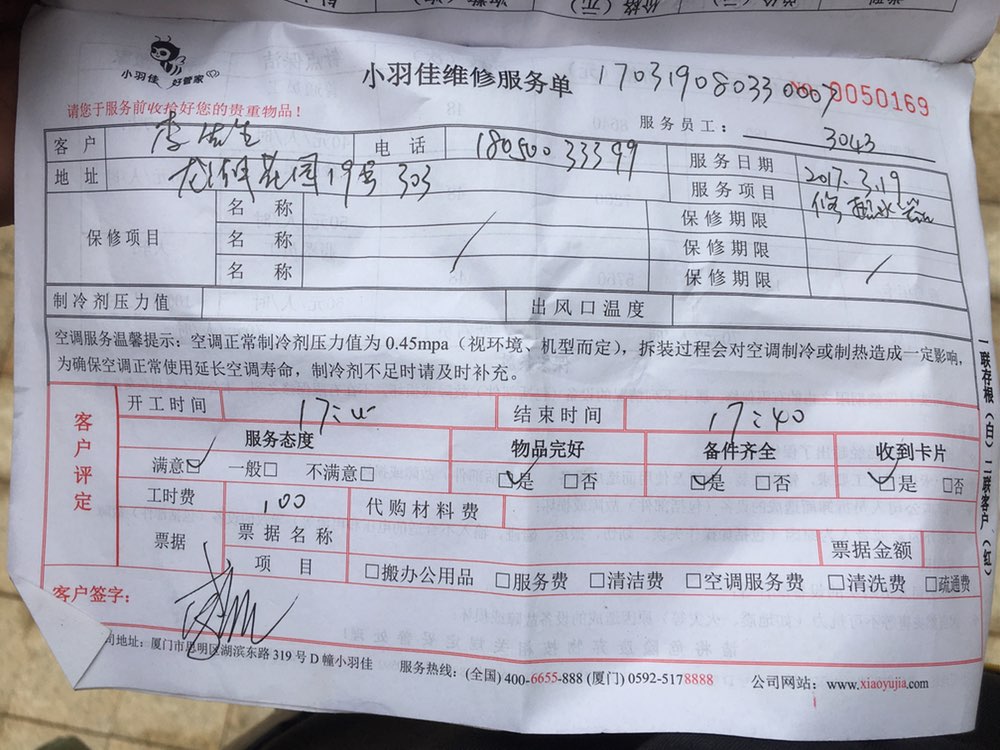 价格（元）
小羽佳 好管家
小羽佳维修服务单
170319080330007
0050169
请您于服务前收拾好您的贵重物品！
服务员工：3043
客户 李先生 电话 18050033399 服务日期 2017.3.19
地址 花园19号303 服务项目 修
保修项目 名称 保修期限
名称 保修期限
名称 保修期限
制冷剂压力值 出风口温度
空调服务温馨提示：空调正常制冷剂压力值为 0.45mpa（视环境、机型而定），拆装过程会对空调制冷或制热造成一定影响，
为确保空调正常使用延长空调寿命，制冷剂不足时请及时补充。
客户评定
开工时间 结束时间 17:40
服务态度 物品完好 备件齐全 收到卡片
满意☑ 一般□ 不满意□ ☑是 □否 ☑是 □否 ☑是 □否
工时费 100 代购材料费
票据 票据名称 票据金额
项目 □搬办公用品 □服务费 □清洁费 □空调服务费 □清洗费 □疏通费
客户签字：
司地址：厦门市思明区湖滨东路 319 号 D 幢小羽佳 服务热线：(全国) 400-6655-888 (厦门) 0592-5178888 公司网站：www.xiaoyujia.com
一联存根（白）二联客户（红）